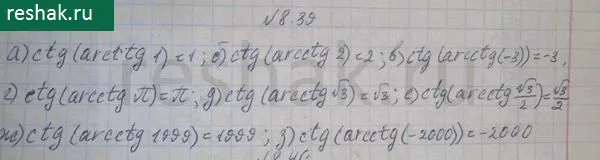 reshak.ru
№8.39
а) ctg(arcctg 1)=1; б) ctg(arcctg 2)=2; в) ctg(arcctg(-3))=-3,
г) ctg(arcctg π)=π; д) ctg(arcctg √3)=√3; е) ctg(arcctg √3/2)=√3/2
ж) ctg(arcctg 1999)=1999; з) ctg(arcctg(-2000))=-2000